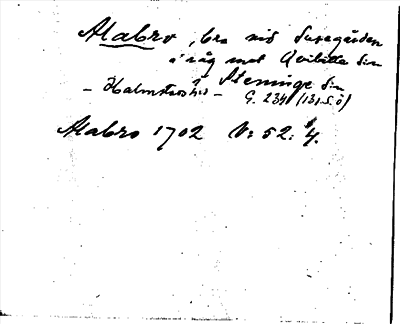 Alabro, bro vid Susegården
i väg mot Qvibille sn
i Steninge sn
– Halmstads hd – G. 234 (131 S. ö)
Alabro 1702 V: 52: 4.